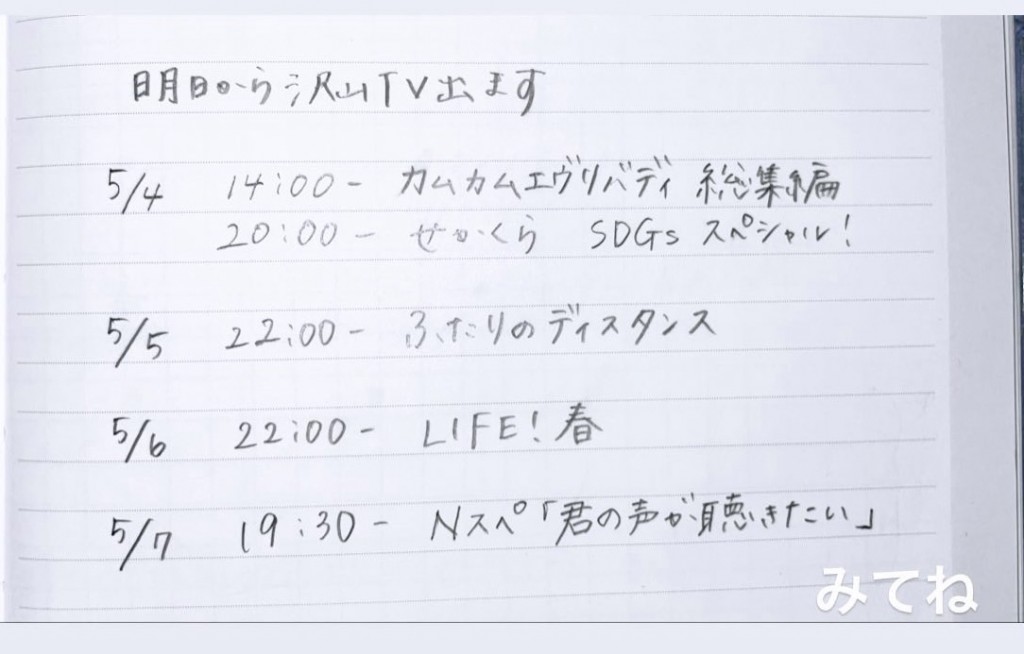 明日から沢山TV出ます
5/4 14:00- カムカムエヴリバディ 総集編
20:00- せかくら SDGs スペシャル!
5/5 22:00- ふたりのディスタンス
5/6 22:00- LIFE! 春
5/7 19:30- Nスペ「君の声が聴きたい」
みてね